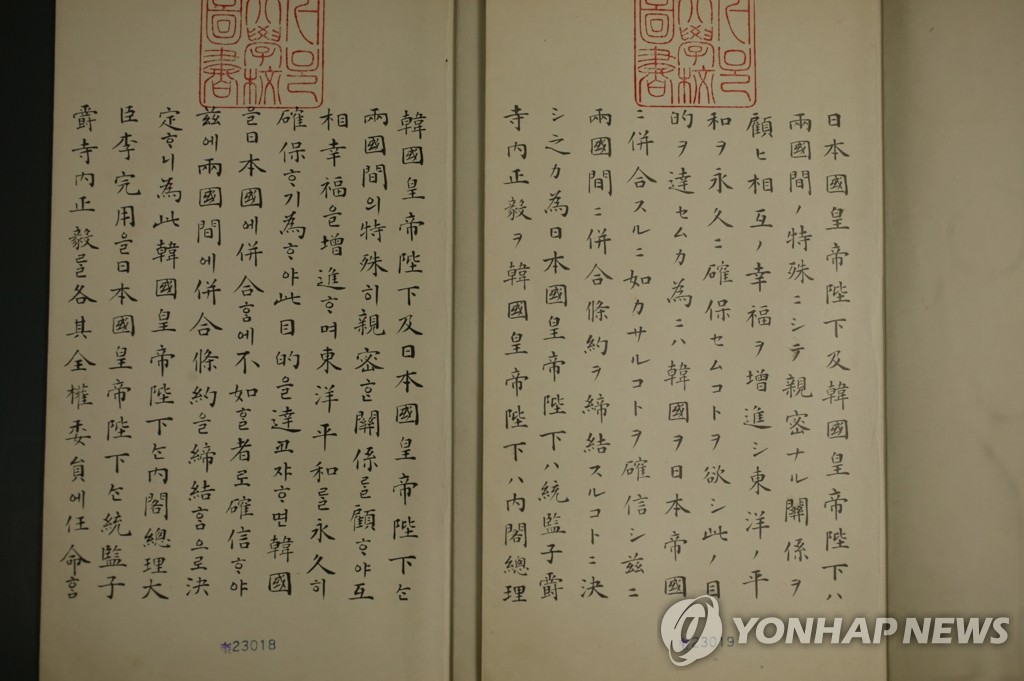 日本國皇帝陛下及韓國皇帝陛下ハ
兩國間ノ特殊ニシテ親密ナル關係ヲ
顧ヒ相互ノ幸福ヲ增進シ東洋ノ平
和ヲ永久ニ確保セムコトヲ欲シ此ノ目
的ヲ達セムカ為ニハ韓國ヲ日本帝國
ニ併合スルニ如カサルコトヲ確信シ茲ニ
兩國間ニ併合條約ヲ締結スルコトニ決
シ之カ為日本國皇帝陛下ハ統監子爵
寺内正毅ヲ韓國皇帝陛下ハ内閣總理
23019
大學校
圖書
韓國皇帝陛下及日本國皇帝陛下ᄂᆞᆫ
兩國間의特殊히親密ᄒᆞᆫ關係ᄅᆞᆯ顧ᄒᆞ야互
相幸福을增進ᄒᆞ며東洋平和ᄅᆞᆯ永久히
確保ᄒᆞ기為ᄒᆞ야此目的을達코쟈ᄒᆞ면韓國
을日本國에併合ᄒᆞᆷ에不如ᄒᆞᆯ者로確信ᄒᆞ야
茲에兩國間에併合條約을締結ᄒᆞᆷ으로決
定ᄒᆞ니為此韓國皇帝陛下ᄂᆞᆫ內閣總理大
臣李完用을日本國皇帝陛下ᄂᆞᆫ統監子
爵寺內正毅ᄅᆞᆯ各其全權委員에任命ᄒᆞᆷ
23018
大學校
圖書
YONHAP NEWS